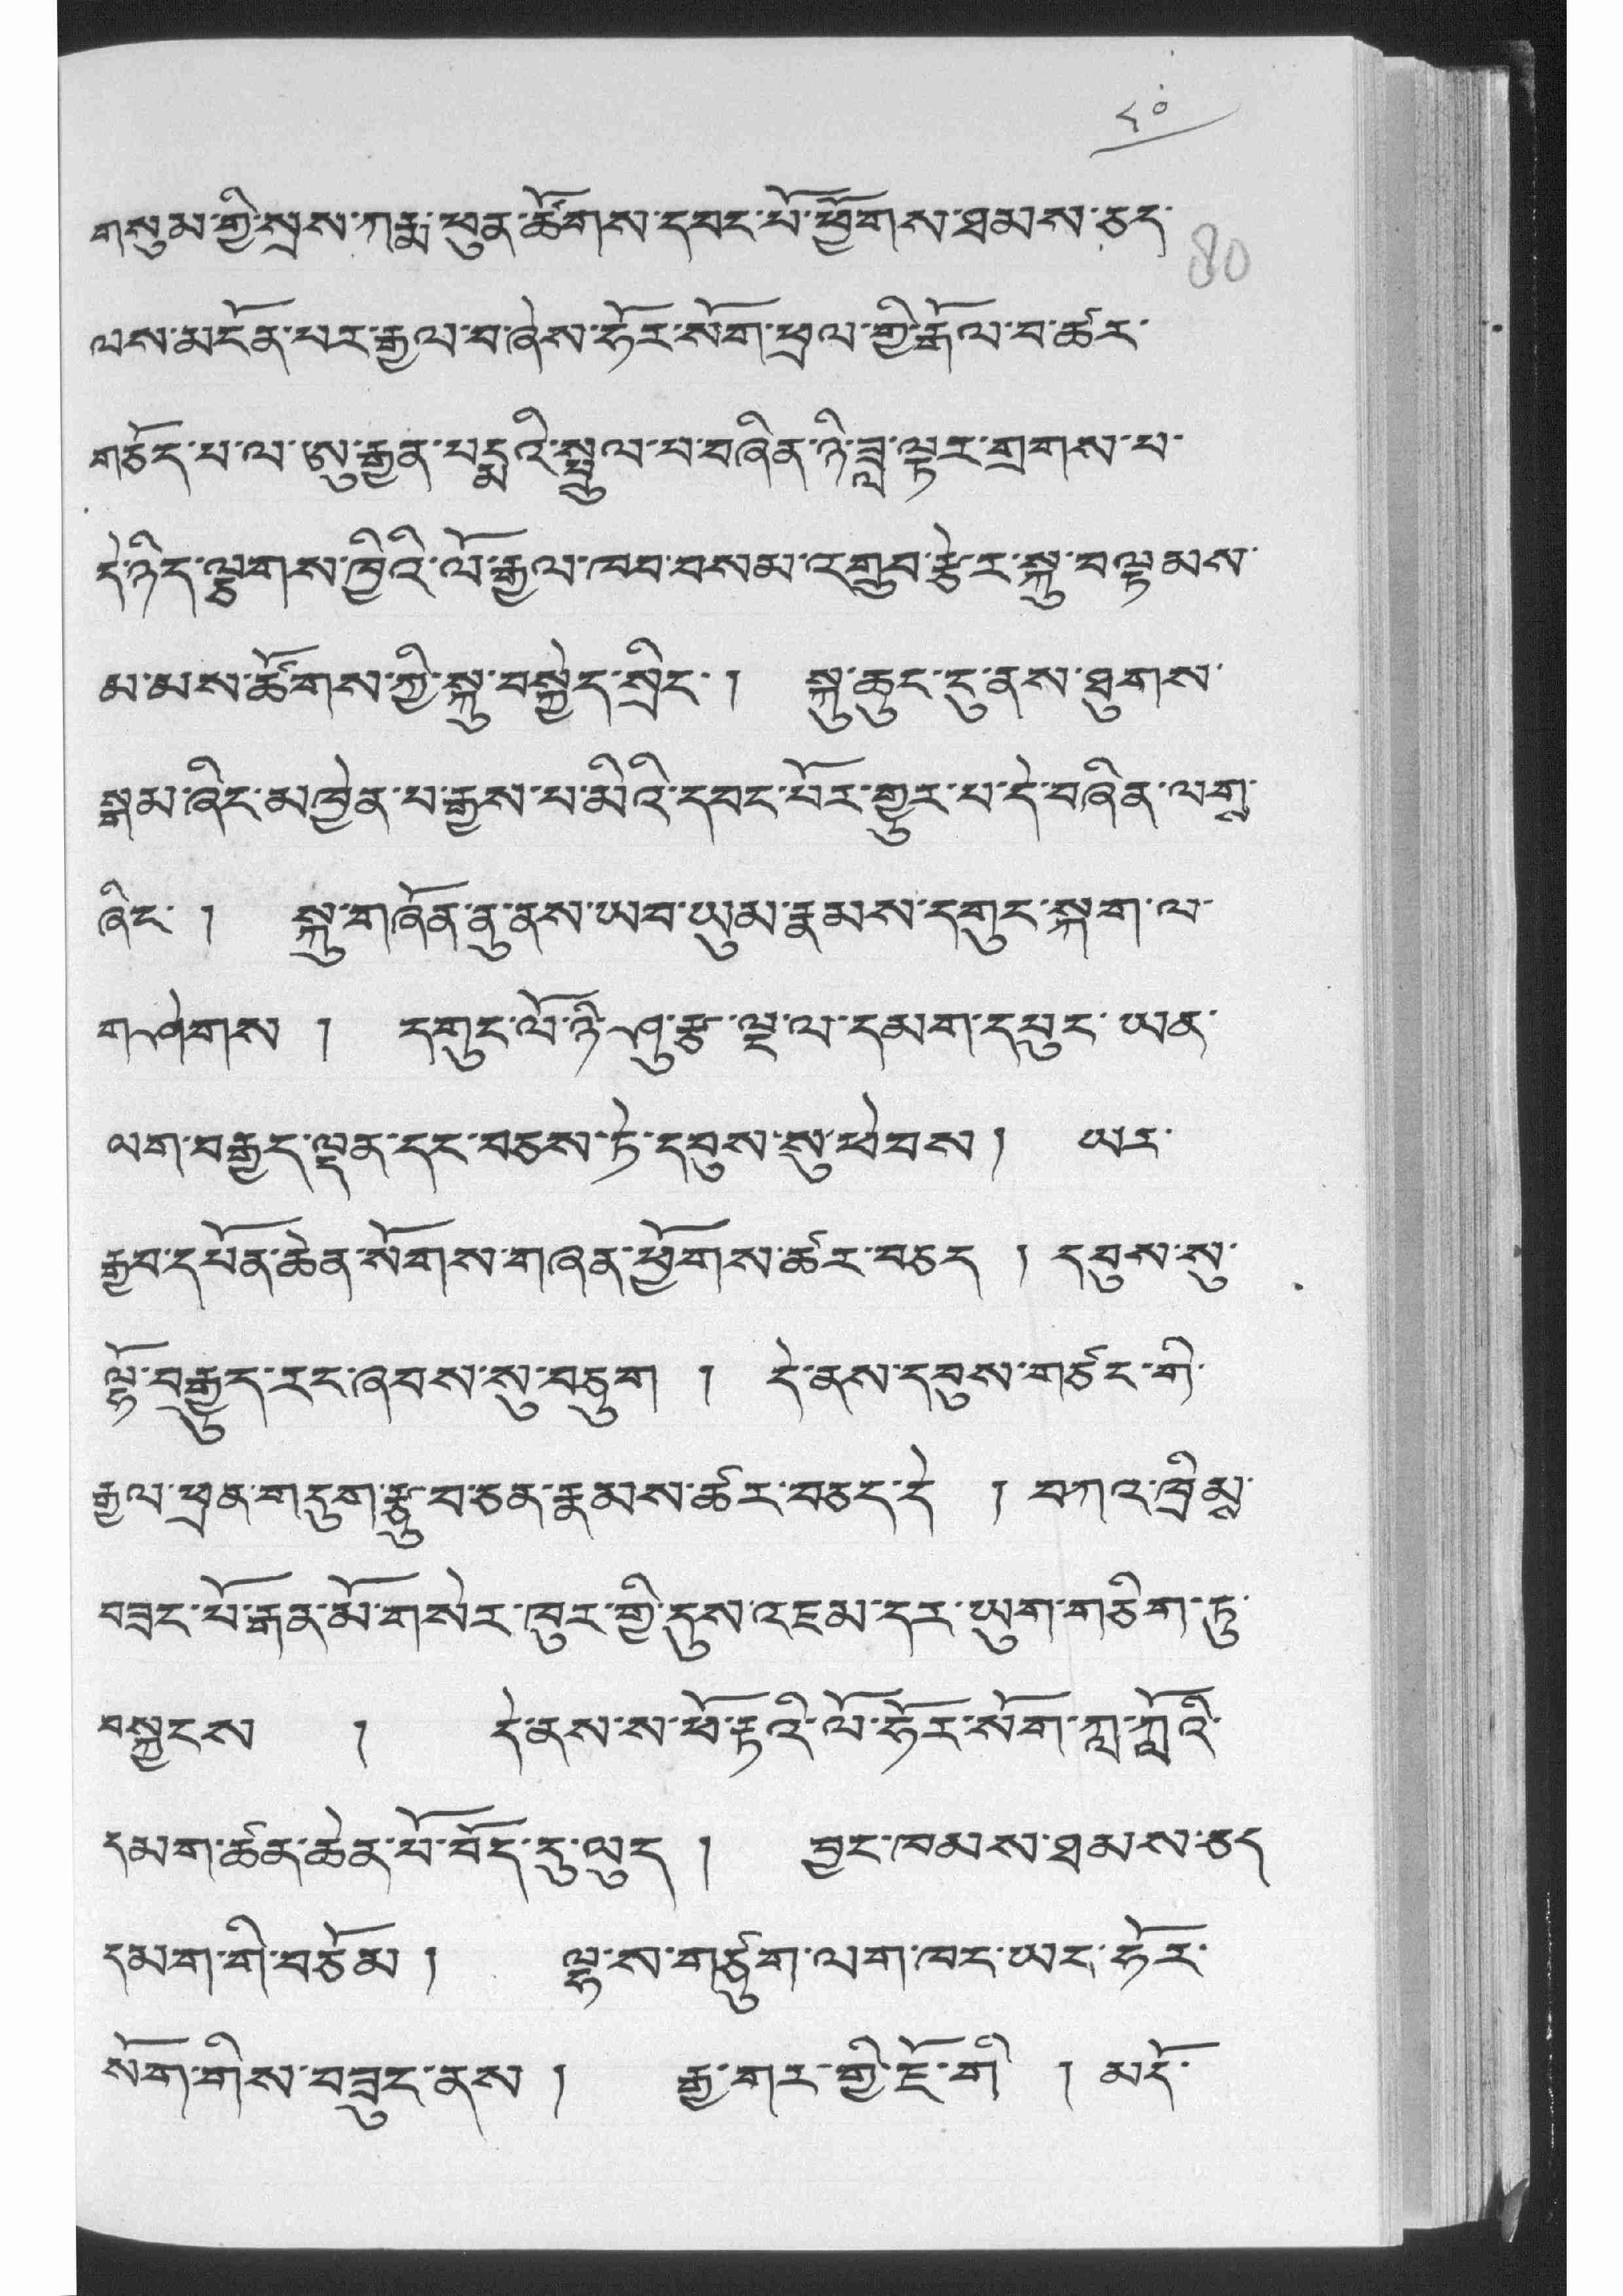 ༨༠
གསུམ་གྱི་སྲས་ཀརྨ་ཕུན་ཚོགས་དབང་པོ་ཕྱོགས་ཐམས་ཅད་
80
ལས་མངོན་པར་རྒྱལ་བ་ཞེས་ཧོར་སོག་ཕྲལ་གྱི་རྒོལ་བ་ཚར་
གཅོད་པ་ལ་ཨུ་རྒྱན་པདྨའི་སྤྲུལ་པ་བཞིན་ཉི་ཟླ་ལྟར་གྲགས་པ་
དེ་ཉིད་ལྕགས་ཁྱིའི་ལོ་རྒྱལ་ཁབ་བསམ་འགྲུབ་རྩེར་སྐུ་བལྟམས་
མ་མས་ཚོགས་ཀྱི་སྐུ་བསྐྱེད་སྲིང་། སྐུ་ཆུང་དུ་ནས་ཐུགས་
སྒམ་ཞིང་མཁྱེན་པ་རྒྱས་པ་མིའི་དབང་པོར་གྱུར་པ་དེ་བཞིན་ལགྶ་
ཞིང་། སྐུ་གཞོན་ནུ་ནས་ཡབ་ཡུམ་རྣམས་དགུང་སྐག་ལ་
གཤེགས། དགུང་ལོ་ཉི་ཤུ་རྩ་ལྔ་ལ་དམག་དཔུང་ཡན་
ལག་བརྒྱད་ལྡན་དང་བཅས་ཏེ་དབུས་སུ་ཕེབས། ཡར་
རྒྱབ་དཔོན་ཆེན་སོགས་གཞན་ཕྱོགས་ཚར་བཅད། དབུས་སུ་
ལྷོ་བརྒྱུད་རང་ཞབས་སུ་བཅུག། དེ་ནས་དབུས་གཙང་གི་
རྒྱལ་ཕྲན་གདུག་རྩུབ་ཅན་རྣམས་ཚར་བཅད་དེ། བཀའ་ཁྲིམྶ་
བཟང་པོ་རྒན་མོ་གསེར་ཁུར་གྱི་དུས་འཇམ་དར་ཡུག་གཅིག་ཏུ་
བསྐྱངས། དེ་ནས་ས་ཕོ་རྟའི་ལོ་ཧོར་སོག་ཀླ་ཀློའི་
དམག་ཚན་ཆེན་པོ་བོད་དུ་ལུད། བྱང་ཁམས་ཐམས་ཅད
དམག་གི་བཅོམ། ལྷ་ས་གཙུག་ལག་ཁང་ཡང་ཧོར་
སོག་གིས་བཟུང་ནས། རྒྱ་གར་གྱི་ཇོ་གི། མདོ་